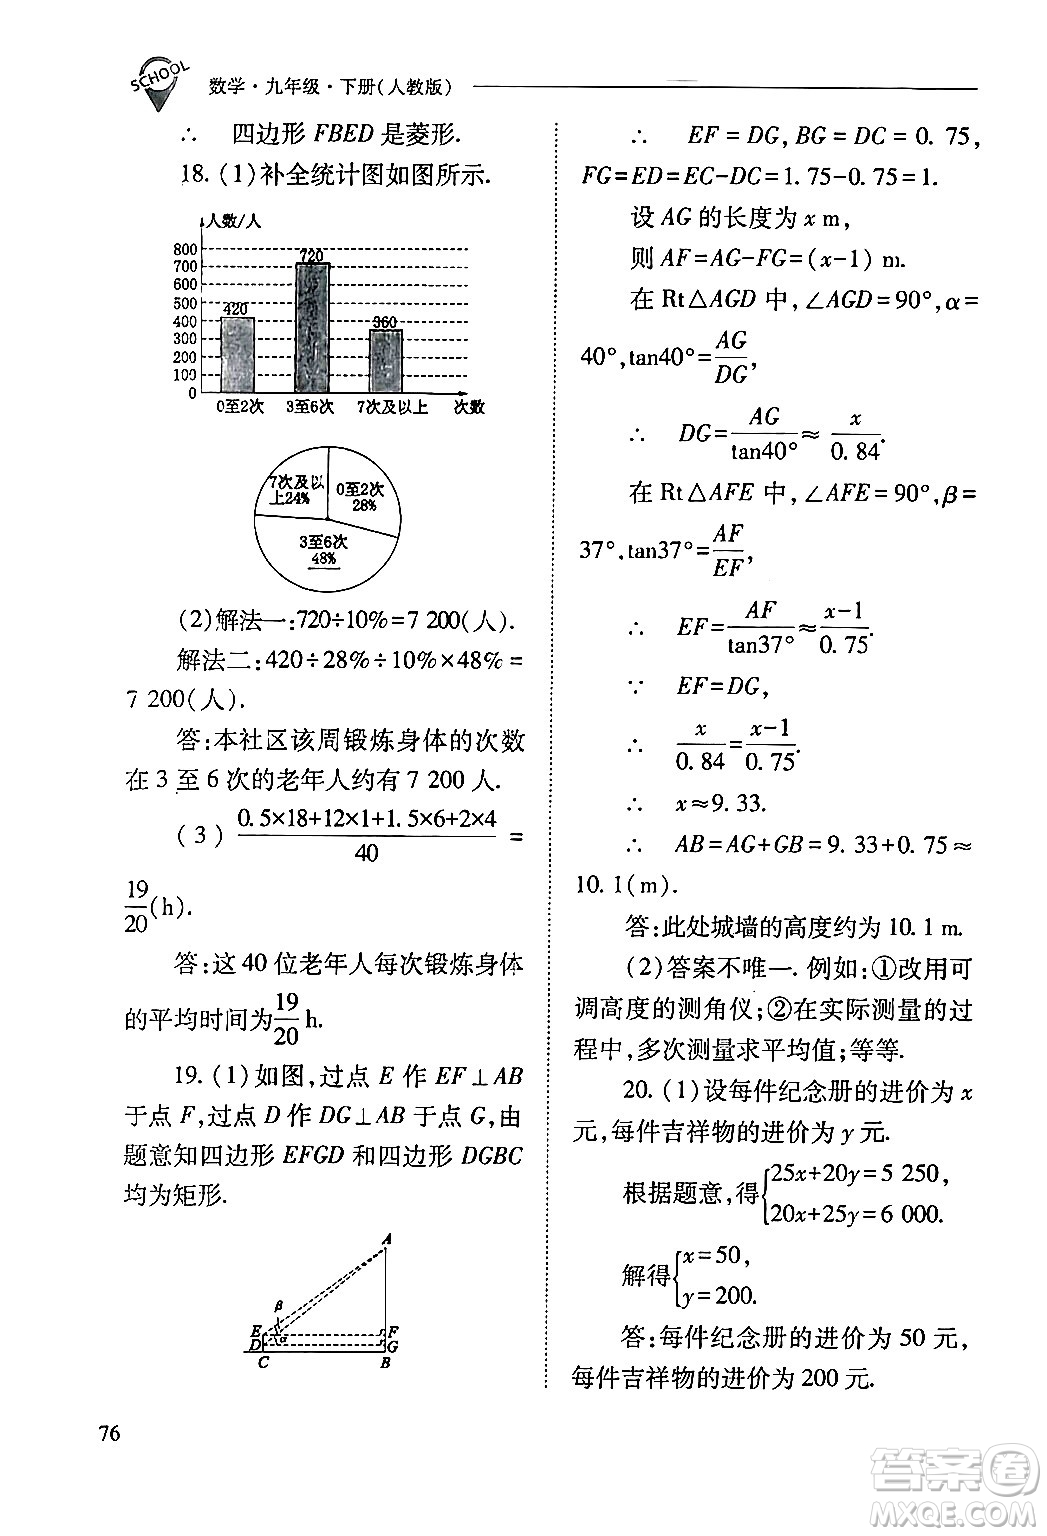 SCHOOL
数学·九年级·下册(人教版)
∴ 四边形 FBED 是菱形.
18. (1)补全统计图如图所示.
人数/人
800
700
600
500
400
300
200
100
0
420
720
360
0至2次 3至6次 7次及以上 次数
7次及以上24%
0至2次 28%
3至6次 48%
(2)解法一:720÷10%=7 200(人).
解法二:420÷28%÷10%×48%=
7 200(人).
答:本社区该周锻炼身体的次数
在 3 至 6 次的老年人约有 7 200 人.
(3) (0.5×18+12×1+1.5×6+2×4)/40 =
19/20(h).
答:这 40 位老年人每次锻炼身体
的平均时间为19/20 h.
19. (1)如图,过点 E 作 EF⊥AB
于点 F,过点 D 作 DG⊥AB 于点 G,由
题意知四边形 EFGD 和四边形 DGBC
均为矩形.
A
β
E
F
D
α
G
C
B
76
∴ EF=DG, BG=DC=0.75,
FG=ED=EC-DC=1.75-0.75=1.
设 AG 的长度为 x m,
则 AF=AG-FG=(x-1) m.
在 Rt△AGD 中,∠AGD=90°,α=
40°,tan40°=AG/DG,
∴ DG=AG/tan40°≈x/0.84.
在 Rt△AFE 中,∠AFE=90°,β=
37°,tan37°=AF/EF,
∴ EF=AF/tan37°≈(x-1)/0.75.
∵ EF=DG,
∴ x/0.84=(x-1)/0.75.
∴ x≈9.33.
∴ AB=AG+GB=9.33+0.75≈
10.1(m).
答:此处城墙的高度约为 10.1 m.
(2)答案不唯一. 例如:①改用可
调高度的测角仪;②在实际测量的过
程中,多次测量求平均值;等等.
20. (1)设每件纪念册的进价为 x
元,每件吉祥物的进价为 y 元.
根据题意,得{25x+20y=5 250,
20x+25y=6 000.
解得{x=50,
y=200.
答:每件纪念册的进价为 50 元,
每件吉祥物的进价为 200 元.
答案圈
MXQE.COM